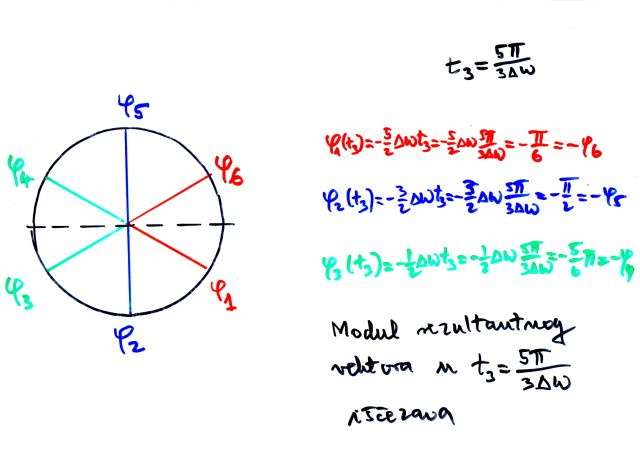 t₃ = 5π/3Δω
φ₅
φ₄
φ₆
φ₁(t₃)=-5/2 Δωt₃=-5/2 Δω 5π/3Δω=-π/6=-φ₆
φ₂(t₃)=-3/2 Δωt₃=-3/2 Δω 5π/3Δω=-π/2=-φ₅
φ₃(t₃)=-1/2 Δωt₃=-1/2 Δω 5π/3Δω=-5/6 π=-φ₄
φ₃
φ₁
φ₂
Modul rezultantnog
vektora u t₃ = 5π/3Δω
iščezava